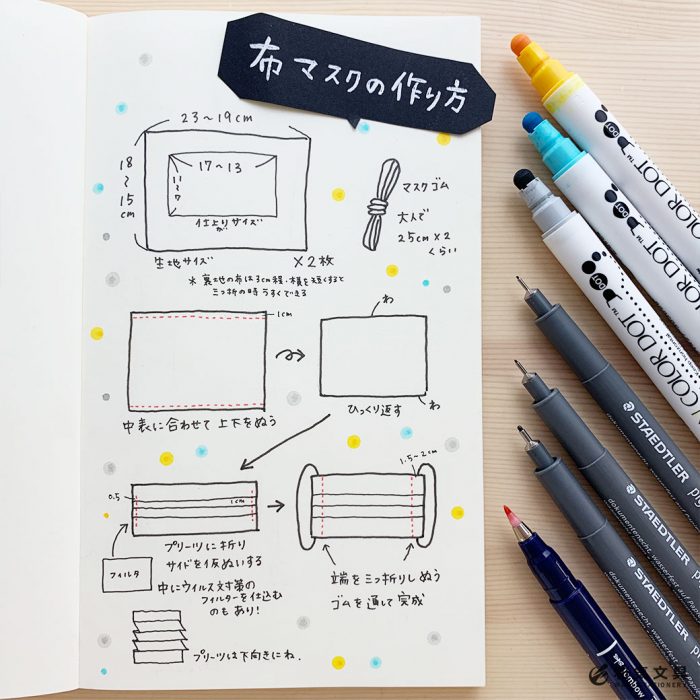 布マスクの作り方
23~19cm
18~15cm
17~13
11~7
仕上りサイズ
が
生地サイズ
×2枚
マスクゴム
大人で
25cm×2
くらい
＊裏地の布は3cm程、横を短くすると
三つ折の時うすくできる
1cm
わ
わ
中表に合わせて上下をぬう
ひっくり返す
0.5
1cm
1.5~2cm
フィルタ
プリーツに折り
サイドを仮ぬいする
中にウイルス対策の
フィルターを仕込む
のもあり!
端を三つ折りしぬう
ゴムを通して完成
プリーツは下向きにね.
DOT COLOR DOT
DOT COLOR DOT
DOT COLOR DOT
STAEDTLER
dokumentenecht, wasserfest auf
STAEDTLER
dokumentenecht, wasserfest
STAEDTLER
dokumentenecht
Tombow
文具